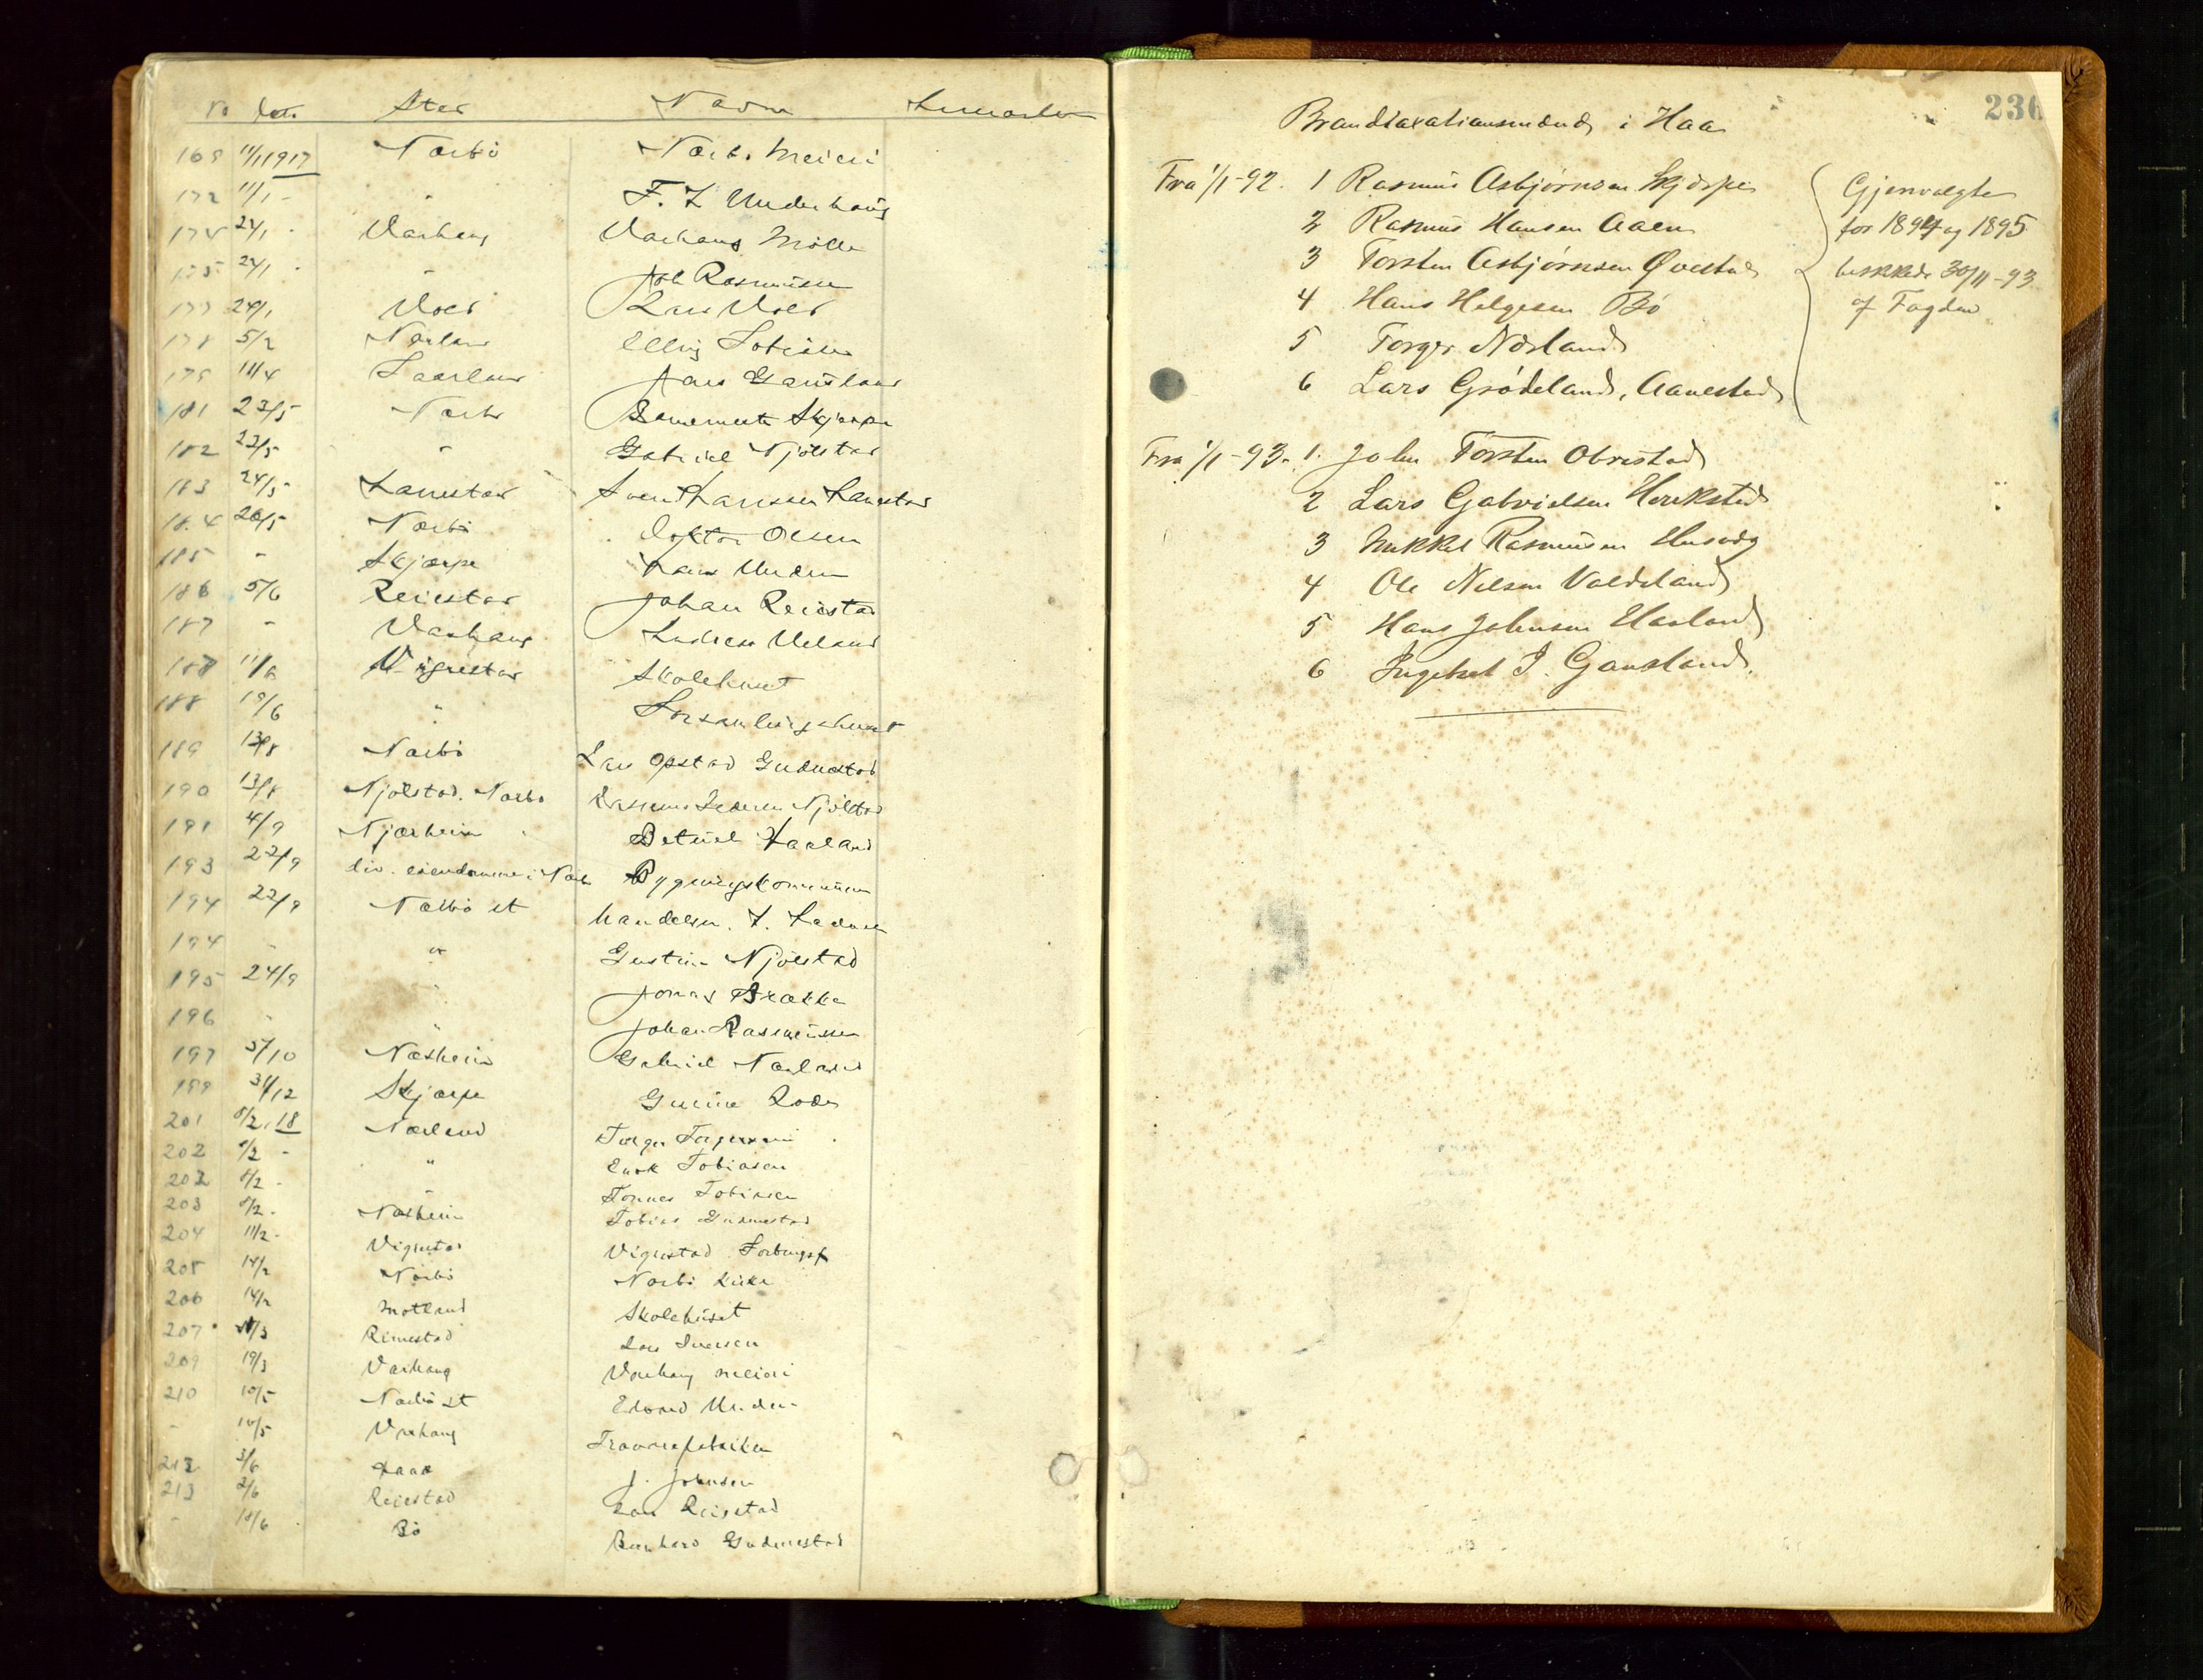 No Dat. Sted Navn Anmerkn
169 11/1 1917 Nærbö Nærb. Meieri
172 11/1 - " F. L Underhaug
174 24/1 - Varhaug Varhaug Mölle
175 24/1 - " Joh Rasmussen
177 24/1 Voll Lars Voll
178 5/2 Nærland Elling Tobiassen
179 11/4 Gausland
181 23/5 Nærbö Skjærpe
182 23/5 " Gabriel Njölstad
183 24/5 Hanestad Sven Hanssen Hanestad
184 26/5 Nærbö Doktor Olsen
185 - Skjærpe Lars Undem
186 5/6 Reiestad Johan Reiestad
187 - Varhaug Andreas Ueland
187 11/6 Vigrestad Skolehuset
188 19/6 " Forsamlingshuset
189 13/8 Nærbö Lars Opstad Gudmestad
190 13/8 Njölstad. Nærbö Rasmus Pedersen Njölstad
191 4/9 Njærheim Betuel Haaland
193 22/9 div. eiendomme i Nærb Bygningskommunen
194 22/9 Nærbö st Handelsm.
194 - " Gustav Njölstad
195 24/9 " Jonas Brække
196 - " Johan Rasmussen
197 5/10 Næsheim Gabriel Nærland
199 31/12 Skjærpe Gurine Rode
201 8/2.18 Nærland Torger Torgersen
202 8/2 - " Enok Tobiasen
202 8/2 - " Tönnes Tobiasen
203 8/2 - Næsheim Tobias Gudmestad
204 11/2 - Vigrestad Vigrestad
205 14/2 Nærbö Nærbö kirke
206 14/2 Motland Skolehuset
207 11/3 Reimestad Lars Iversen
209 19/3 Varhaug Varhaug meieri
210 10/5 Nærbö st Edvard Undem
- 10/5 Varhaug Trævarefabriken
212 3/6 Haar J. Johnsen
213 3/6 Reiestad Lars Reiestad
- 18/6 Bö Bernhard Gudmestad
236
Brandtaxationsmænd i Haa
Fra 1/1-92. 1 Rasmus Asbjørnsen Skjærpe
2 Rasmus Hansen Aaen
3 Torsten Asbjørnsen Øvestad
4 Hans Helgesen Bö
5 Torger Nærland
6 Lars Grødeland, Aanestad
Gjenvalgte
for 1894 og 1895
beskikkede 30/11-93
af Fogden
Fra 1/1-93. 1. John Torsten Obrestad
2 Lars Gabrielsen Herikstad
3 Mikkel Rasmussen Husvæg
4 Ole Nilsen Valdeland
5 Hans Johnsen Haaland
6 Ingebret I. Gausland.